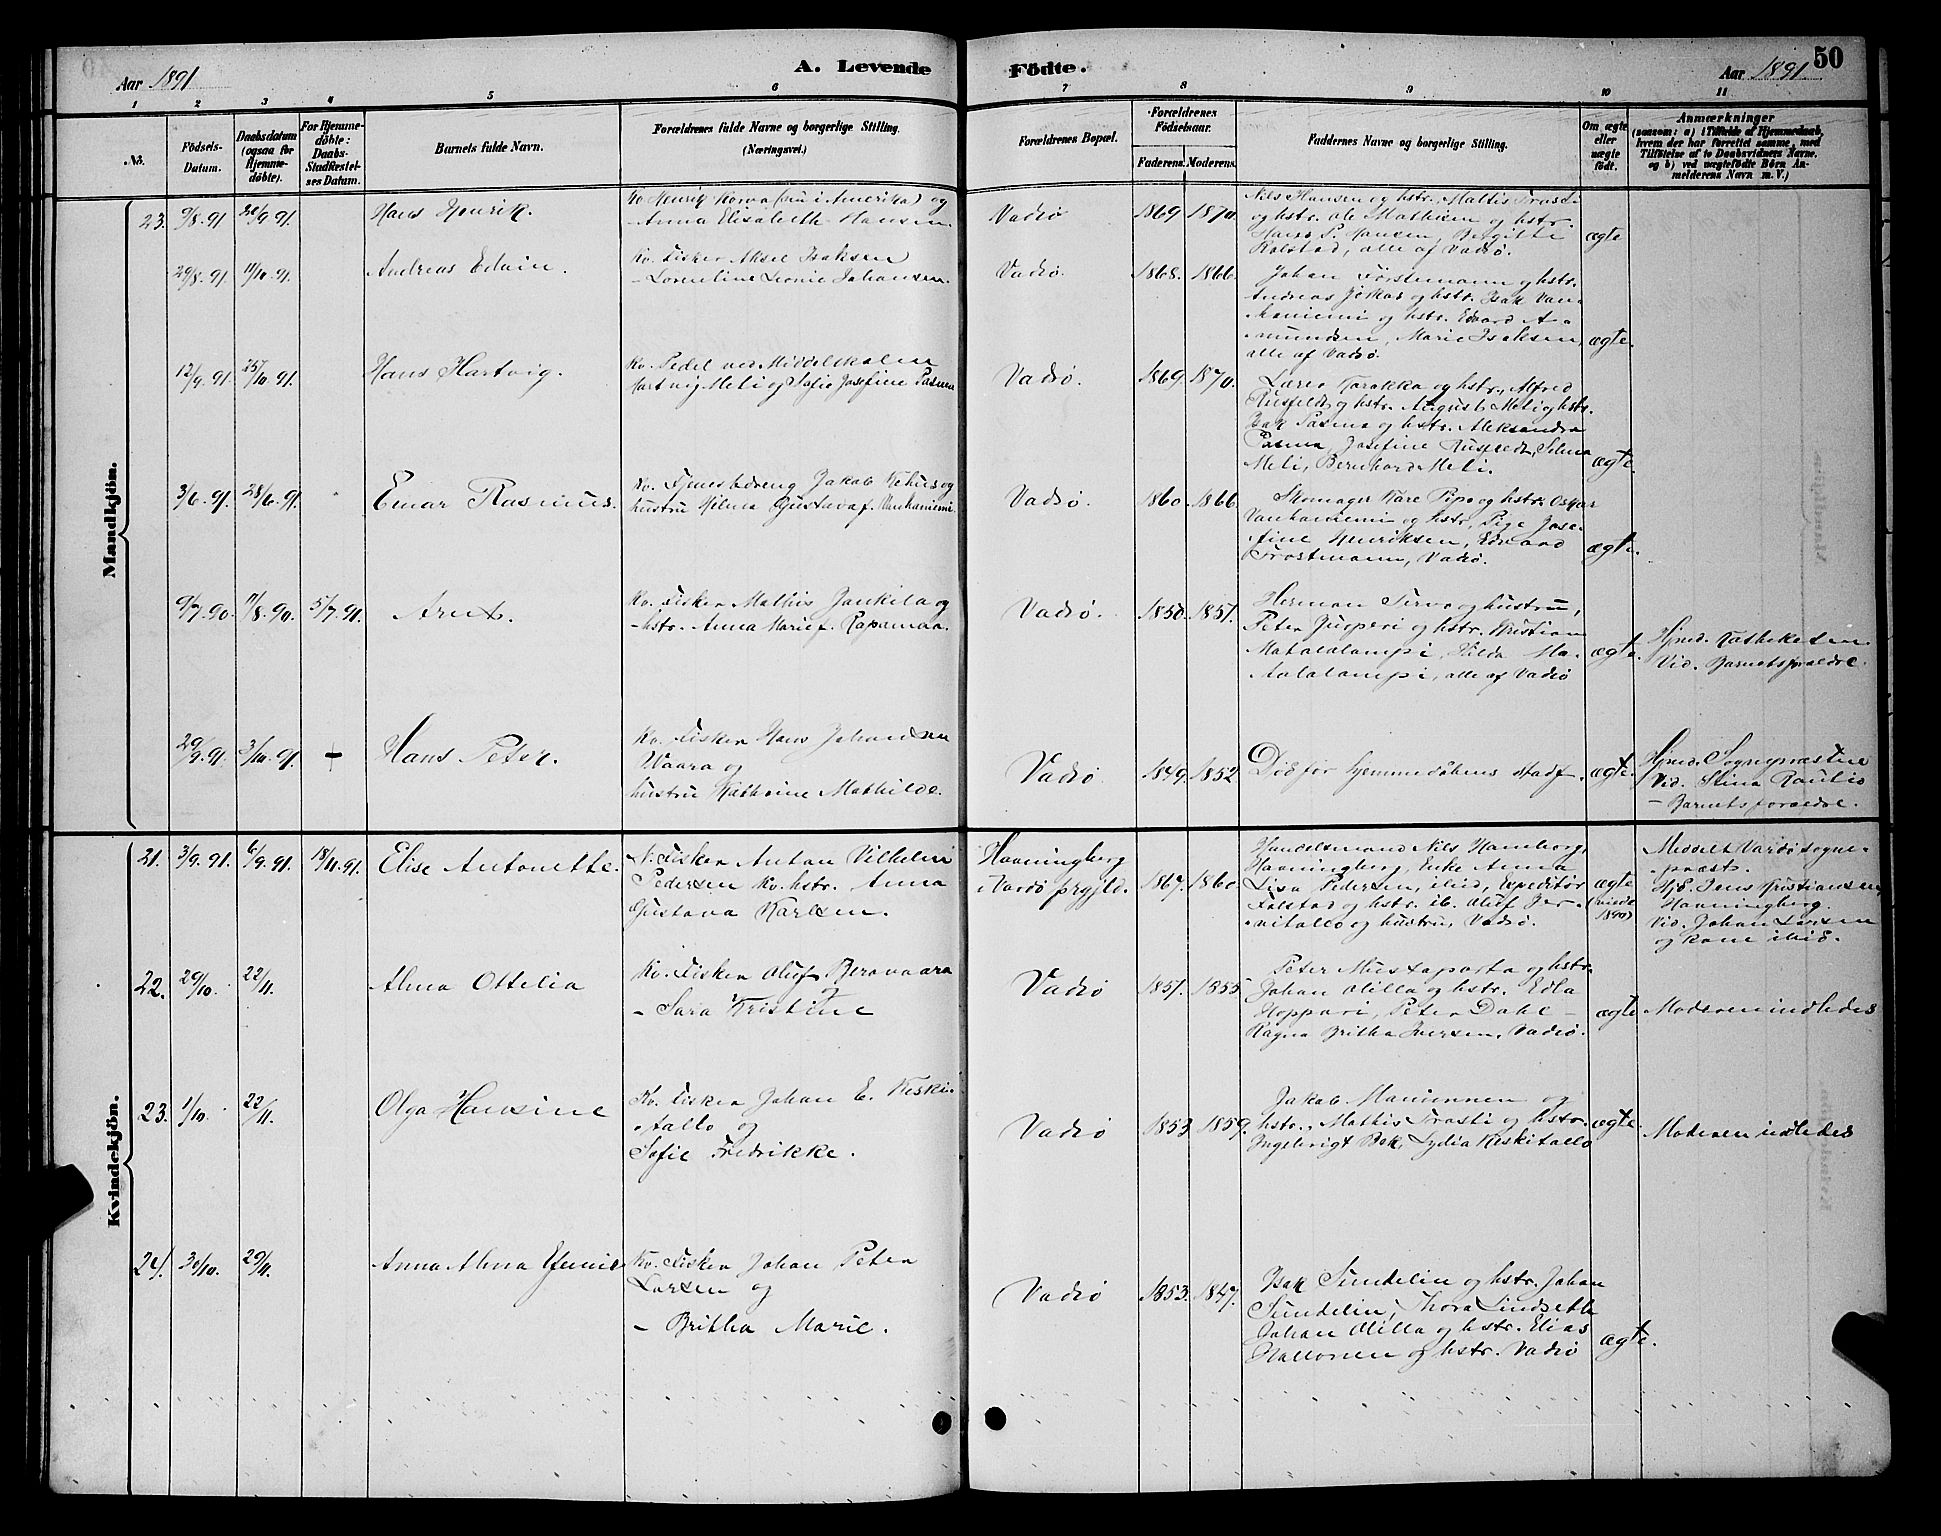 50
Aar 1891
A. Levende Födte.
Aar 1891
1 2 3 4 5 6 7 8 9 10 11
No.
Födsels-Datum.
Daabsdatum (ogsaa for Hjemme-döbte).
For Hjemme-döbte: Daabs-Stadfæstel-ses Datum.
Barnets fulde Navn.
Forældrenes fulde Navne og borgerlige Stilling.
(Næringsvei.)
Forældrenes Bopæl.
Forældrenes Födselsaar.
Faderens. Moderens.
Faddernes Navne og borgerlige Stilling.
Om ægte eller uægte födt.
Anmærkninger
(saasom: a) i Tilfælde af Hjemmedaab, hvem der har forrettet samme, med Tilföielse af to Daabsvidners Navne, og b) ved uægtefödte Börn An-melderens Navn m. V.)
Mandkjön.
23. 9/8.91 20/9 91. Hans Henrik.
Kv. Henrik Korva (nu i Amerika) og
Anna Elisabeth Hansen
Vadsø 1869 1870.
Nils Hansen og hstr., Mattis Trasti
og hstr. Ole Mathisen og hstr.
Hans P. Hansen, Bergitte
Rolstad, alle af Vadsø.
ægte
29/8.91. 11/10.91. Andreas Edvin.
Kv. Fisker Aksel Isaksen
- Lorentine Leonie Johansen.
Vadsø. 1868. 1866.
Johan Förstemann og hstr.
Andreas Jokas og hstr. Isak Van-
haniemi og hstr. Edvard A-
mundsen, Marie Isaksen,
alle af Vadsø
ægte.
12/9.91. 25/10.91. Hans Hartvig.
Kv. Pedel ved Middelskolen
Hartvig Meli og Sofie Josefine Pasma
Vadsø. 1869. 1870.
Lærer Karakka og hstr., Alfred
Rusfeldt og hstr. August Meli og hstr.
Isak Pasma og hstr. Aleksandra
Pasma, Josefine Rusfeldt, Selma
Meli, Bernhard Meli.
ægte.
3/6.91. 28/6.91. Einar Rasmus.
Kv. Tjenestedreng Jakob Kehus og
hustru Hilma Gustava f. Vanhaniemi.
Vadsø. 1860. 1866.
Skomager Kåre Pipo og hstr. Oskar
Vanhaniemi og hstr., Pige Jose-
fine Henriksen, Edvard
Trostmann, Vadsø.
ægte.
9/7.90. 17/8.90. 5/7.91. Arnt.
Kv. Fisker Mathis Jankila og
- hstr. Anna Marie f. Rapamaa.
Vadsø. 1850. 1851.
Herman Sirva og hustru,
Peter Jusperi og hstr. Kristian
Matalalampi, Hilda Ma-
talalampi, alle af Vadsø
ægte.
Hjmd. Vatheketen
Vid. Barnets forældre.
29/9.91. 3/10.91. Hans Peter.
Kv. Fisker Hans Johansen
Waara og
hustru Kathrine Mathilde.
Vadsø. 1849. 1852
Död för hjemmedåbens stadf.
ægte.
Hjmd. Sognepræsten
Vid. Stina Raulio
- Barnets forældre.
Kvindekjön.
21. 3/9.91. 6/9.91. 18/11.91. Elise Antonette.
N. Fisker Anton Vilhelm
Pedersen Kv. hstr. Anna
Gustava Karlsen.
Havningberg
i Vardø prgjld. 1867. 1860.
Handelsmand Nils Hamborg,
Havningberg, Enke Anna
Lisa Pedersen, ibid, Expeditör
Falstad og hstr. ib. Oluf Jer-
vitallo og hustru, Vadsø.
ægte
(viede
1890)
Meddelt Vardø sogne-
præst.
Hjd. Jens Kristiansen,
Havningberg.
Vid. Johan Larsen
og kone ibid.
22. 29/10. 22/11. Alma Ottelia
Kv. Fisker Oluf Beravaara
- Sara Kristine
Vadsø 1851. 1855
Peter Mustaparta og hstr.
Johan Olilla og hstr. Edla
Hoppari, Peter Dahl
Vagna Britha Iversen, Vadsø.
ægte
Moderen indledes
23. 1/10. 22/11. Olga Hansine
Kv. Fisker Johan E. Keski-
tallo og
Sofie Fredrikke.
Vadsø 1853 1859.
Jakob Maninnen og
hstr., Mathis Trasti og hstr.
Ingebrigt Bak, Lydia Keskitallo
ægte.
Moderen indledes
24. 30/10. 29/11. Anna Alma Efenie
Kv. Fisker Johan Peter
Larsen og
- Britha Marie.
Vadsø 1853. 1847.
Isak Sundelin og hstr. Johan
Sundelin, Thora Lindseth
Johan Olilla og hstr. Elias
Hallonen og hstr. Vadsø
ægte.